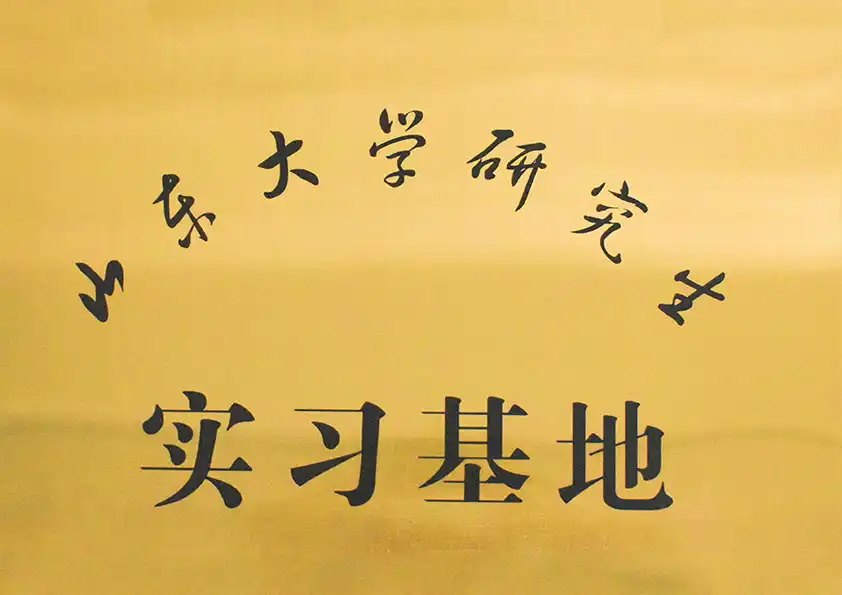 山东大学研究生
实习基地